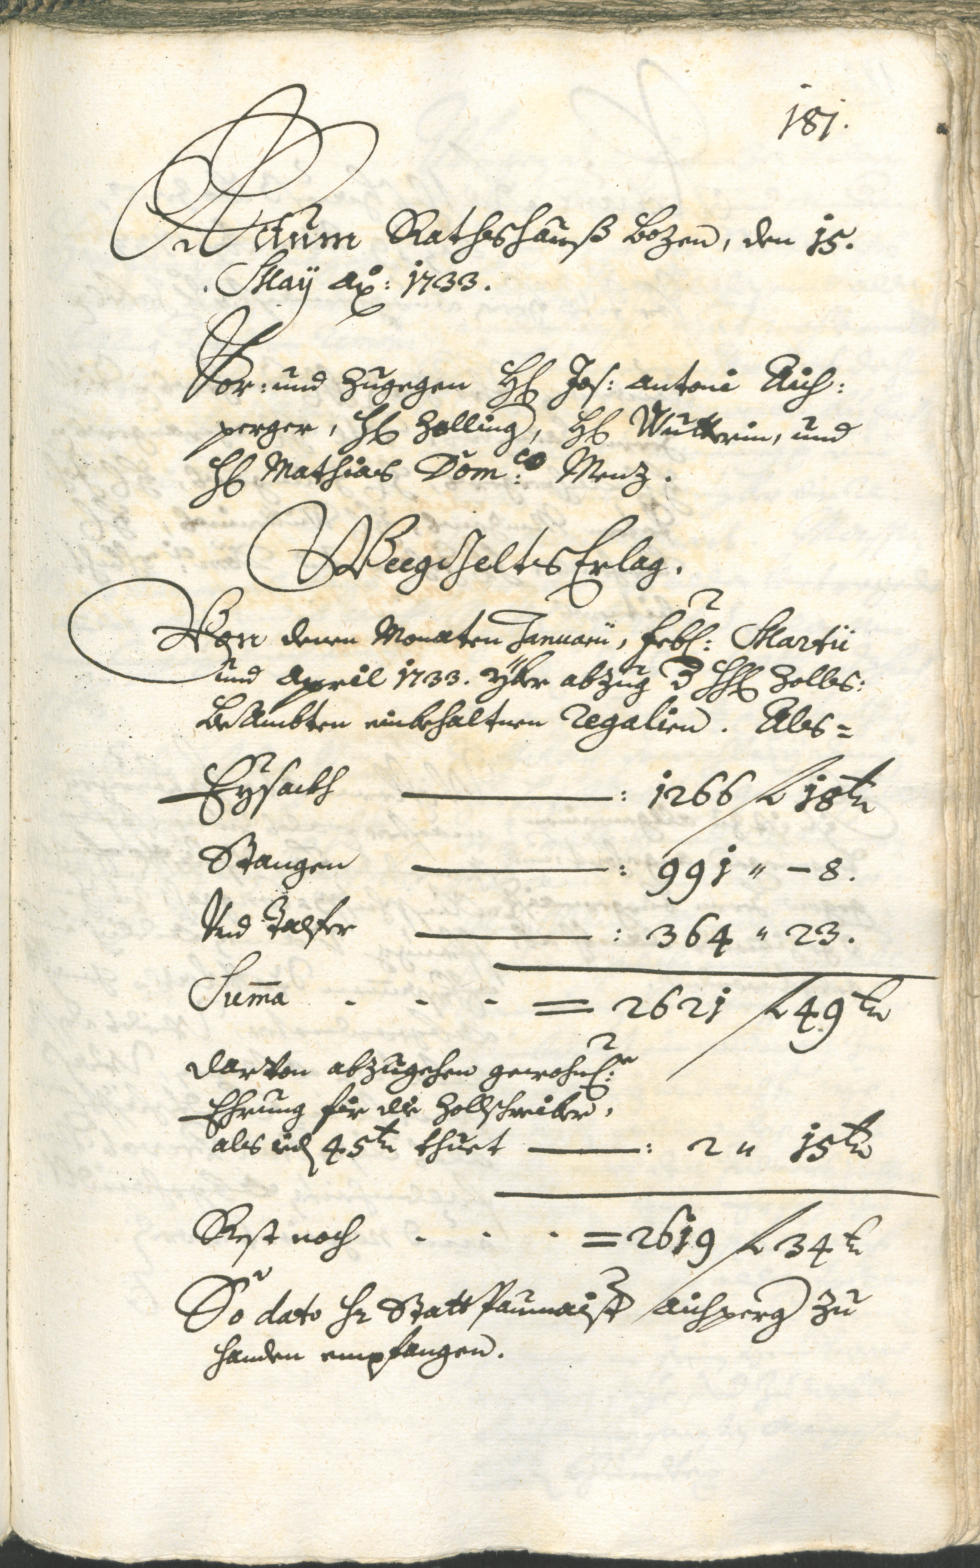 181.
Actum Rathshauß Bozen, den 15.
May Ao: 1733.
Vor: und zugegen HE Jos: Antoni Aich:
perger, HE Zalling, HE Mutterin, und
HE Mathias Dom:co Menz.
WeegGelts Erlag.
Von denen Monaten Januarii, febr: Martii
und April 1733. yber abzug der HHE Zolls:
beambten einbehaltnen regalien. Als=
Eysackh : 1266 f 18 kr
Stangen : 991 " - 8.
Und Talfer : 364 " 23.
Suma - - - = 2621 f 49 kr
darvon abzugehen gewohnl:r
Ehrung für die Zollschreiber,
als ied 45 kr thuet : 2 " 15 kr
Rest noch - - - = 2619 f 34 kr
So dato Hr Statt Paumaistr Aichperg zu
handen empfangen.